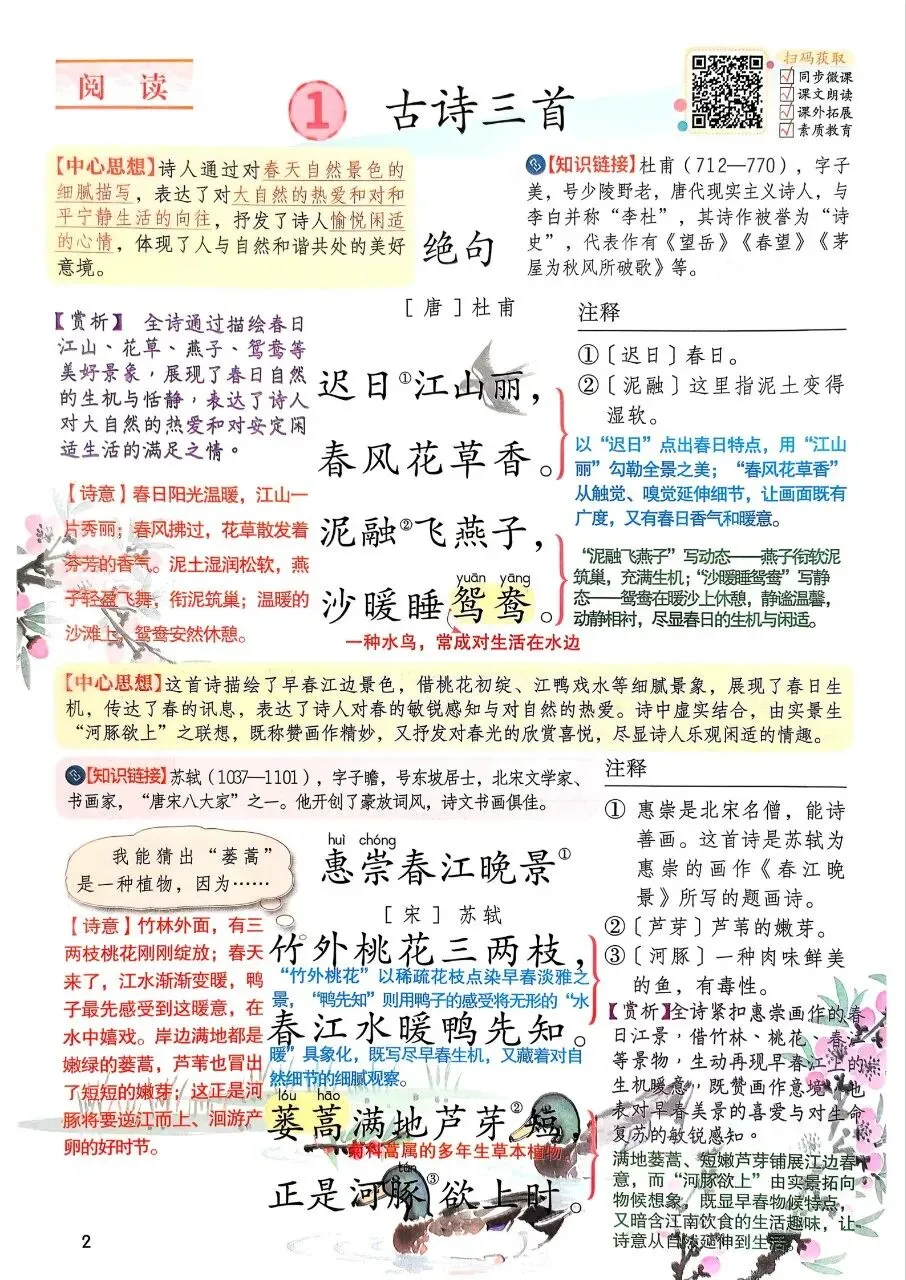 阅 读
扫码获取
同步微课
课文朗读
课外拓展
素质教育
1 古诗三首
【中心思想】诗人通过对春天自然景色的
细腻描写，表达了对大自然的热爱和对和
平宁静生活的向往，抒发了诗人愉悦闲适
的心情，体现了人与自然和谐共处的美好
意境。
【知识链接】杜甫（712—770），字子
美，号少陵野老，唐代现实主义诗人，与
李白并称“李杜”，其诗作被誉为“诗
史”，代表作有《望岳》《春望》《茅
屋为秋风所破歌》等。
绝句
［唐］杜甫
【赏析】 全诗通过描绘春日
江山、花草、燕子、鸳鸯等
美好景象，展现了春日自然
的生机与恬静，表达了诗人
对大自然的热爱和对安定闲
适生活的满足之情。
【诗意】春日阳光温暖，江山一
片秀丽；春风拂过，花草散发着
芬芳的香气。泥土湿润松软，燕
子轻盈飞舞，衔泥筑巢；温暖的
沙滩上，鸳鸯安然休憩。
迟日①江山丽，
春风花草香。
泥融②飞燕子，
yuān yāng
沙暖睡鸳鸯。
一种水鸟，常成对生活在水边
注释
①〔迟日〕春日。
②〔泥融〕这里指泥土变得
湿软。
以“迟日”点出春日特点，用“江山
丽”勾勒全景之美；“春风花草香”
从触觉、嗅觉延伸细节，让画面既有
广度，又有春日香气和暖意。
“泥融飞燕子”写动态——燕子衔软泥
筑巢，充满生机；“沙暖睡鸳鸯”写静
态——鸳鸯在暖沙上休憩，静谧温馨，
动静相衬，尽显春日的生机与闲适。
【中心思想】这首诗描绘了早春江边景色，借桃花初绽、江鸭戏水等细腻景象，展现了春日生
机，传达了春的讯息，表达了诗人对春的敏锐感知与对自然的热爱。诗中虚实结合，由实景生
“河豚欲上”之联想，既称赞画作精妙，又抒发对春光的欣赏喜悦，尽显诗人乐观闲适的情趣。
【知识链接】苏轼（1037—1101），字子瞻，号东坡居士，北宋文学家、
书画家，“唐宋八大家”之一。他开创了豪放词风，诗文书画俱佳。
我能猜出“蒌蒿”
是一种植物，因为……
huì chóng
惠崇春江晚景①
［宋］ 苏轼
【诗意】竹林外面，有三
两枝桃花刚刚绽放；春天
来了，江水渐渐变暖，鸭
子最先感受到这暖意，在
水中嬉戏。岸边满地都是
嫩绿的蒌蒿，芦苇也冒出
了短短的嫩芽；这正是河
豚将要逆江而上、洄游产
卵的好时节。
竹外桃花三两枝，
“竹外桃花”以稀疏花枝点染早春淡雅之
景，“鸭先知”则用鸭子的感受将无形的“水
春江水暖鸭先知。
暖”具象化，既写尽早春生机，又藏着对自
然细节的细腻观察。
lóu hāo
蒌蒿满地芦芽②短，
菊科蒿属的多年生草本植物。
tún
正是河豚③欲上时。
注释
① 惠崇是北宋名僧，能诗
善画。这首诗是苏轼为
惠崇的画作《春江晚
景》所写的题画诗。
②〔芦芽〕芦苇的嫩芽。
③〔河豚〕一种肉味鲜美
的鱼，有毒性。
【赏析】全诗紧扣惠崇画作的春
日江景，借竹林、桃花、春江
等景物，生动再现早春江上的
生机暖意，既赞画作意境，也
表对早春美景的喜爱与对生命
复苏的敏锐感知。
满地蒌蒿、短嫩芦芽铺展江边春
意，而“河豚欲上”由实景拓向
物候想象，既显早春物候特点，
又暗含江南饮食的生活趣味，让
诗意从自然延伸到生活。
2